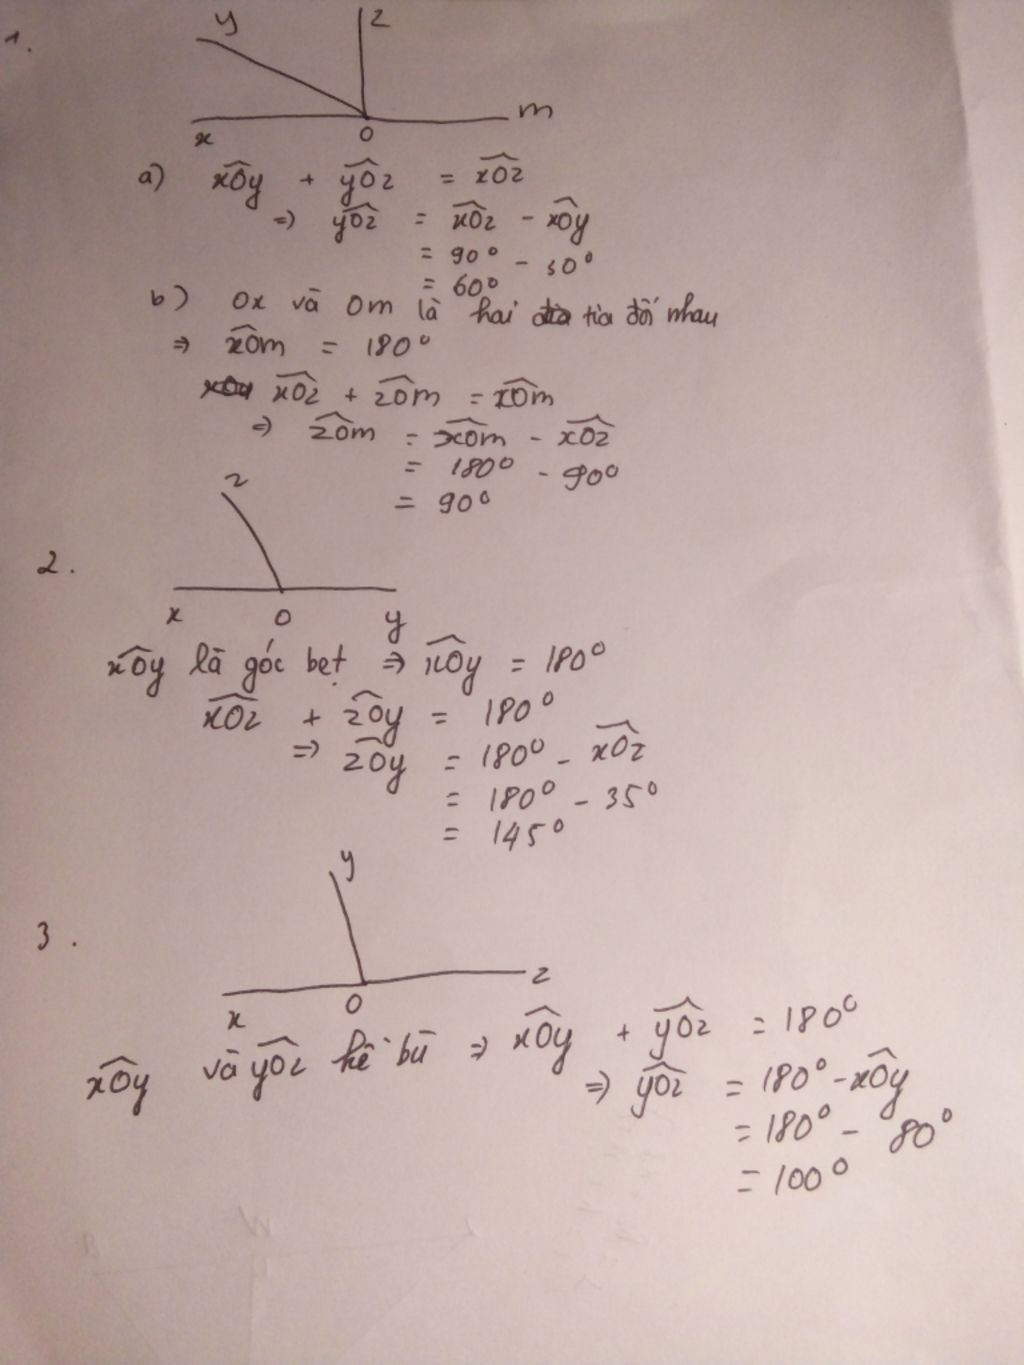 1.
y z
x O m
a) xOy + yOz = xOz
⇒ yOz = xOz - xOy
= 90° - 30°
= 60°
b) Ox và Om là hai tia đối nhau
⇒ xOm = 180°
xOz + zOm = xOm
⇒ zOm = xOm - xOz
= 180° - 90°
= 90°
z
2.
x O y
xOy là góc bẹt ⇒ xOy = 180°
xOz + zOy = 180°
⇒ zOy = 180° - xOz
= 180° - 35°
= 145°
y
3.
x O z
xOy và yOz kề bù ⇒ xOy + yOz = 180°
⇒ yOz = 180° - xOy
= 180° - 80°
= 100°